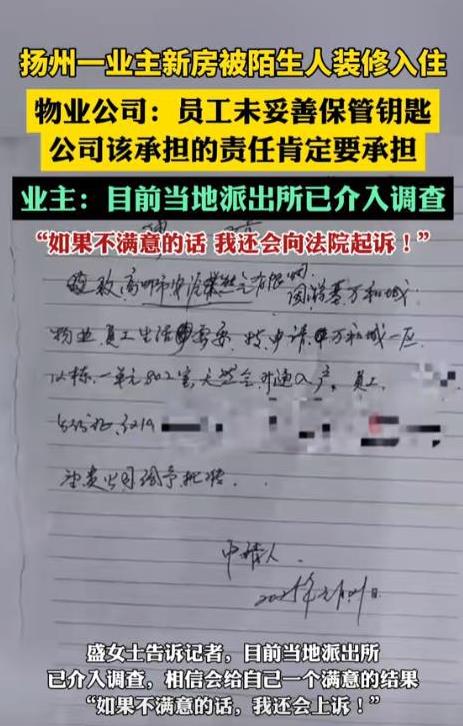 扬州一业主新房被陌生人装修入住
物业公司：员工未妥善保管钥匙
公司该承担的责任肯定要承担
业主：目前当地派出所已介入调查
“如果不满意的话 我还会向法院起诉！”
万和城
物业员工生活需要，特申请万和城一区
一单元802室，天然气开通入户，员工
申请人
盛女士告诉记者，目前当地派出所
已介入调查，相信会给自己一个满意的结果
“如果不满意的话，我还会上诉！”